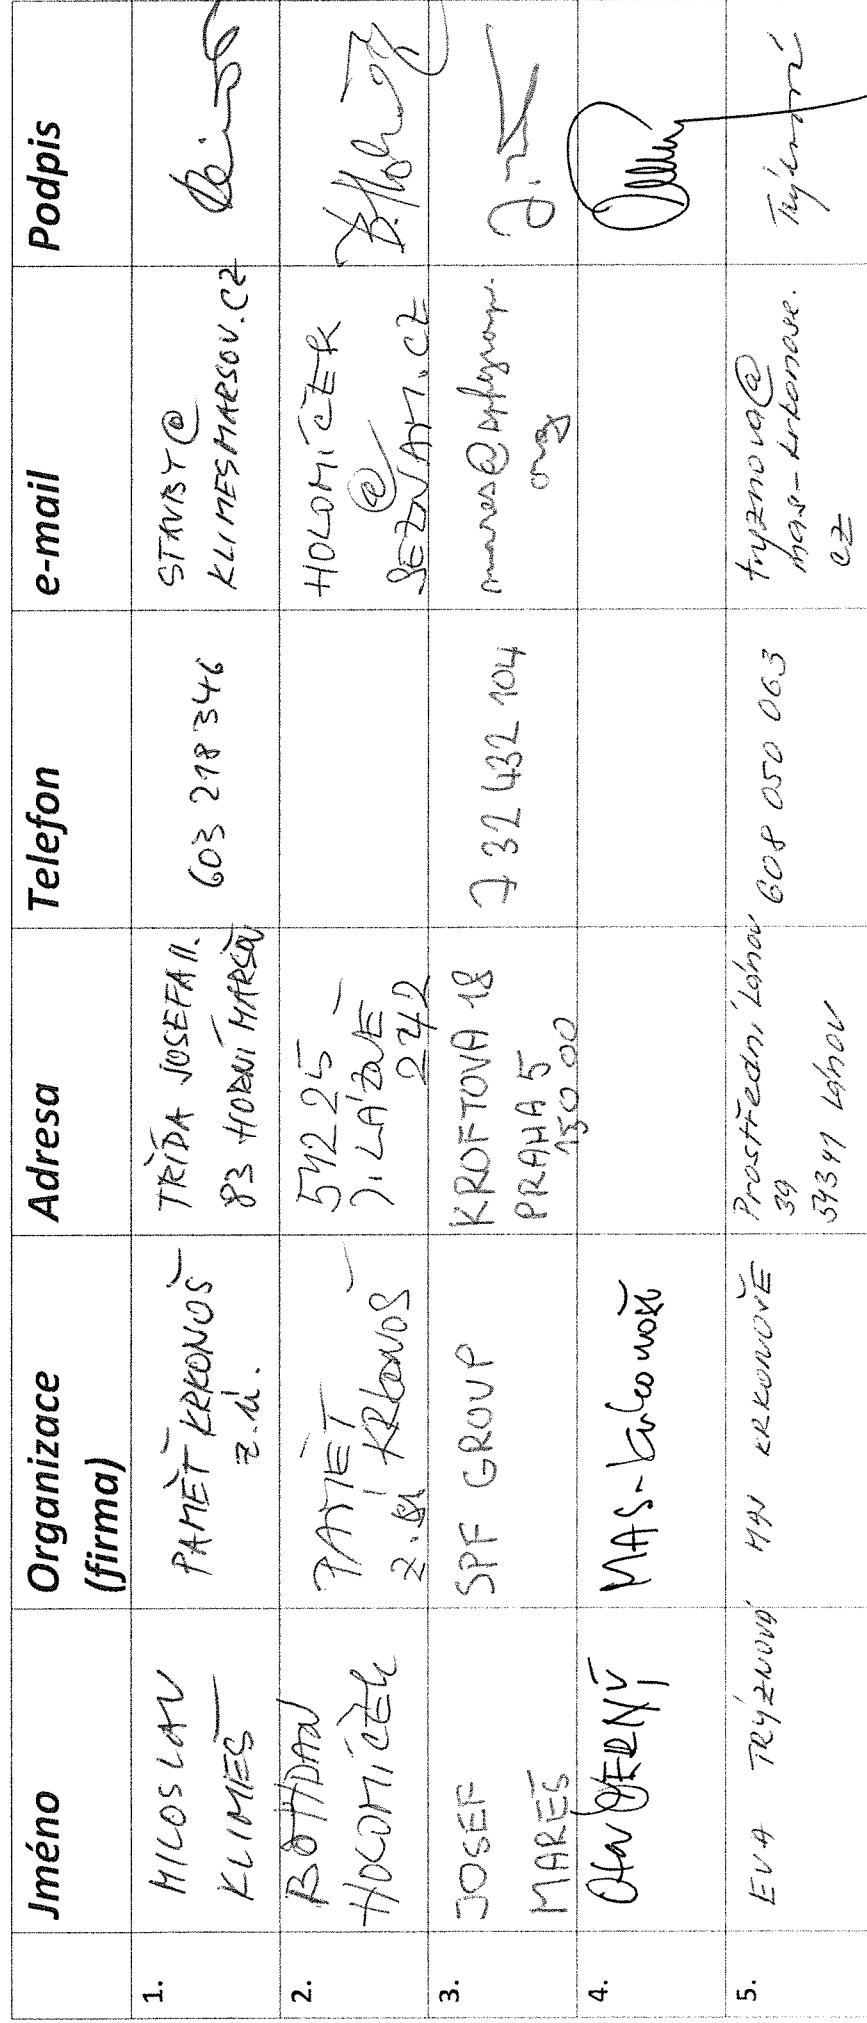 Jméno Organizace (firma) Adresa Telefon e-mail Podpis
1. MILOSLAV KLIMEŠ PAMĚŤ KRKONOŠ z.ú. TŘÍDA JOSEFA II. 83 HORNÍ MARŠOV 603 218 346 STAVBY@ KLIMESMARSOV.CZ
2. BOHDAN HOLOMÍČEK PAMĚŤ KRKONOŠ z.ú. 542 25 J. LÁZNĚ 242 HOLOMICEK @ SEZNAM.CZ B. Holo
3. JOSEF MAREŠ SPF GROUP KROFTOVA 18 PRAHA 5 150 00 732 432 104 mares@spfgroup. org
4. Ota ČERNÝ MAS-Krkonoše
5. EVA TRÝZNOVÁ MAS KRKONOŠE Prostřední Lánov 39 543 41 Lánov 608 050 063 tryznova@ mas-krkonose. cz Trýznová